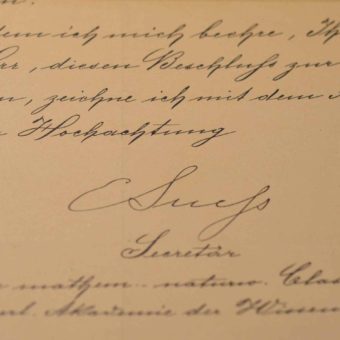 dem ich mich beehre, Ih
rr, diesen Beschluß zur
n, zeichne ich mit dem
Hochachtung
E Sueß
Secretär
mathem. naturw. Clas
. Akademie der Wissen